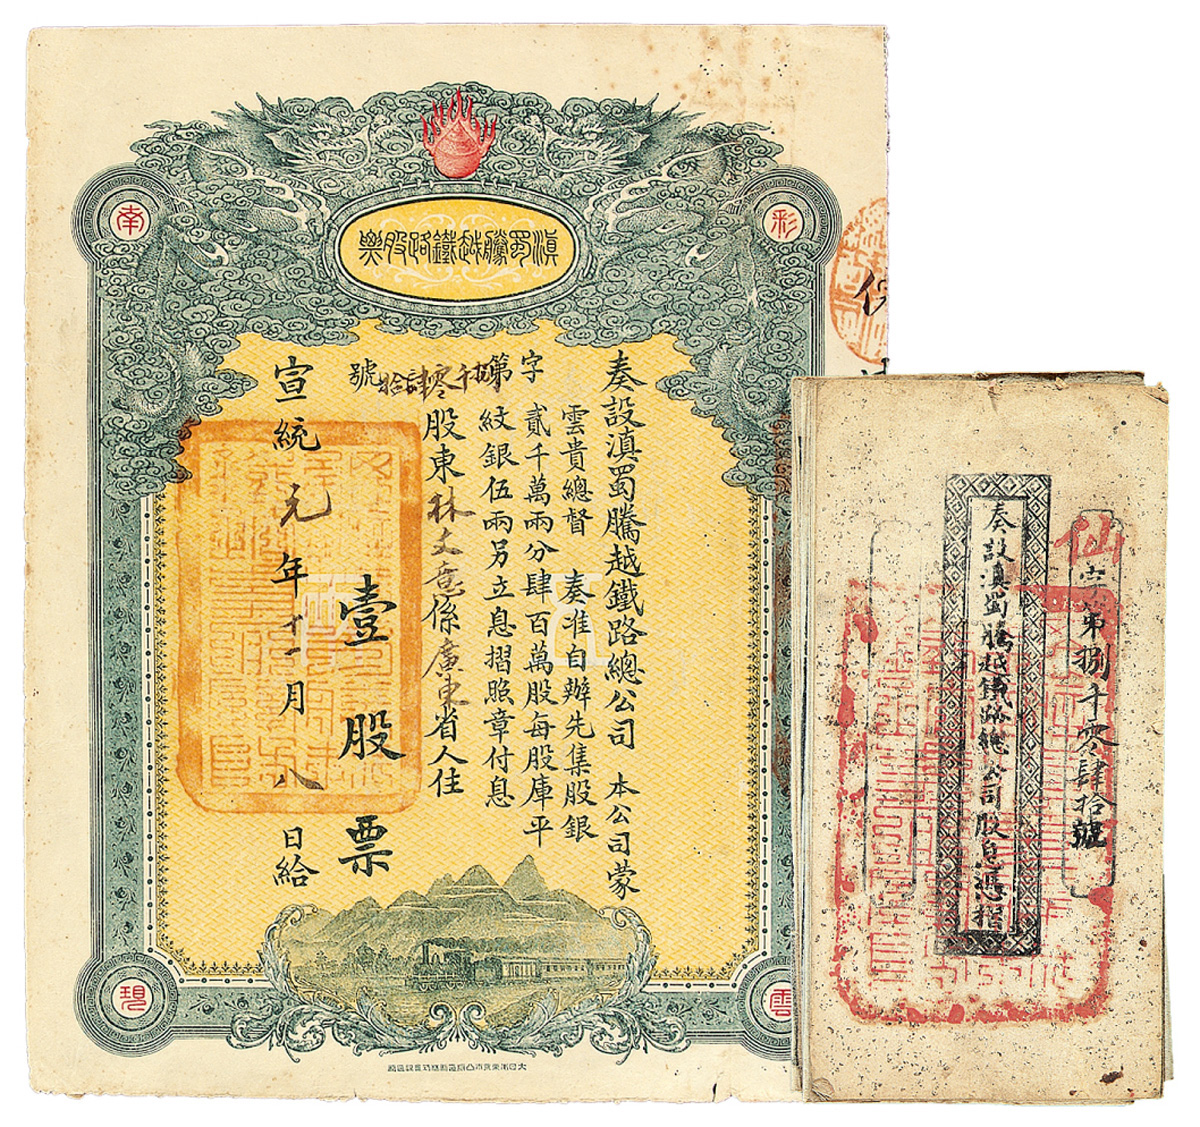 滇蜀騰越鐵路股票
彩
南
雲
碧
奏設滇蜀騰越鐵路總公司 本公司蒙
雲貴總督 奏准自辦先集股銀
貳千萬兩分肆百萬股每股庫平
紋銀伍兩另立息摺照章付息
股東林文意係廣東省人住
字第捌千零肆拾號
壹股票
宣統元年十一月八日給
仙字第捌千零肆拾號
奏設滇蜀騰越鐵路總公司股息憑摺